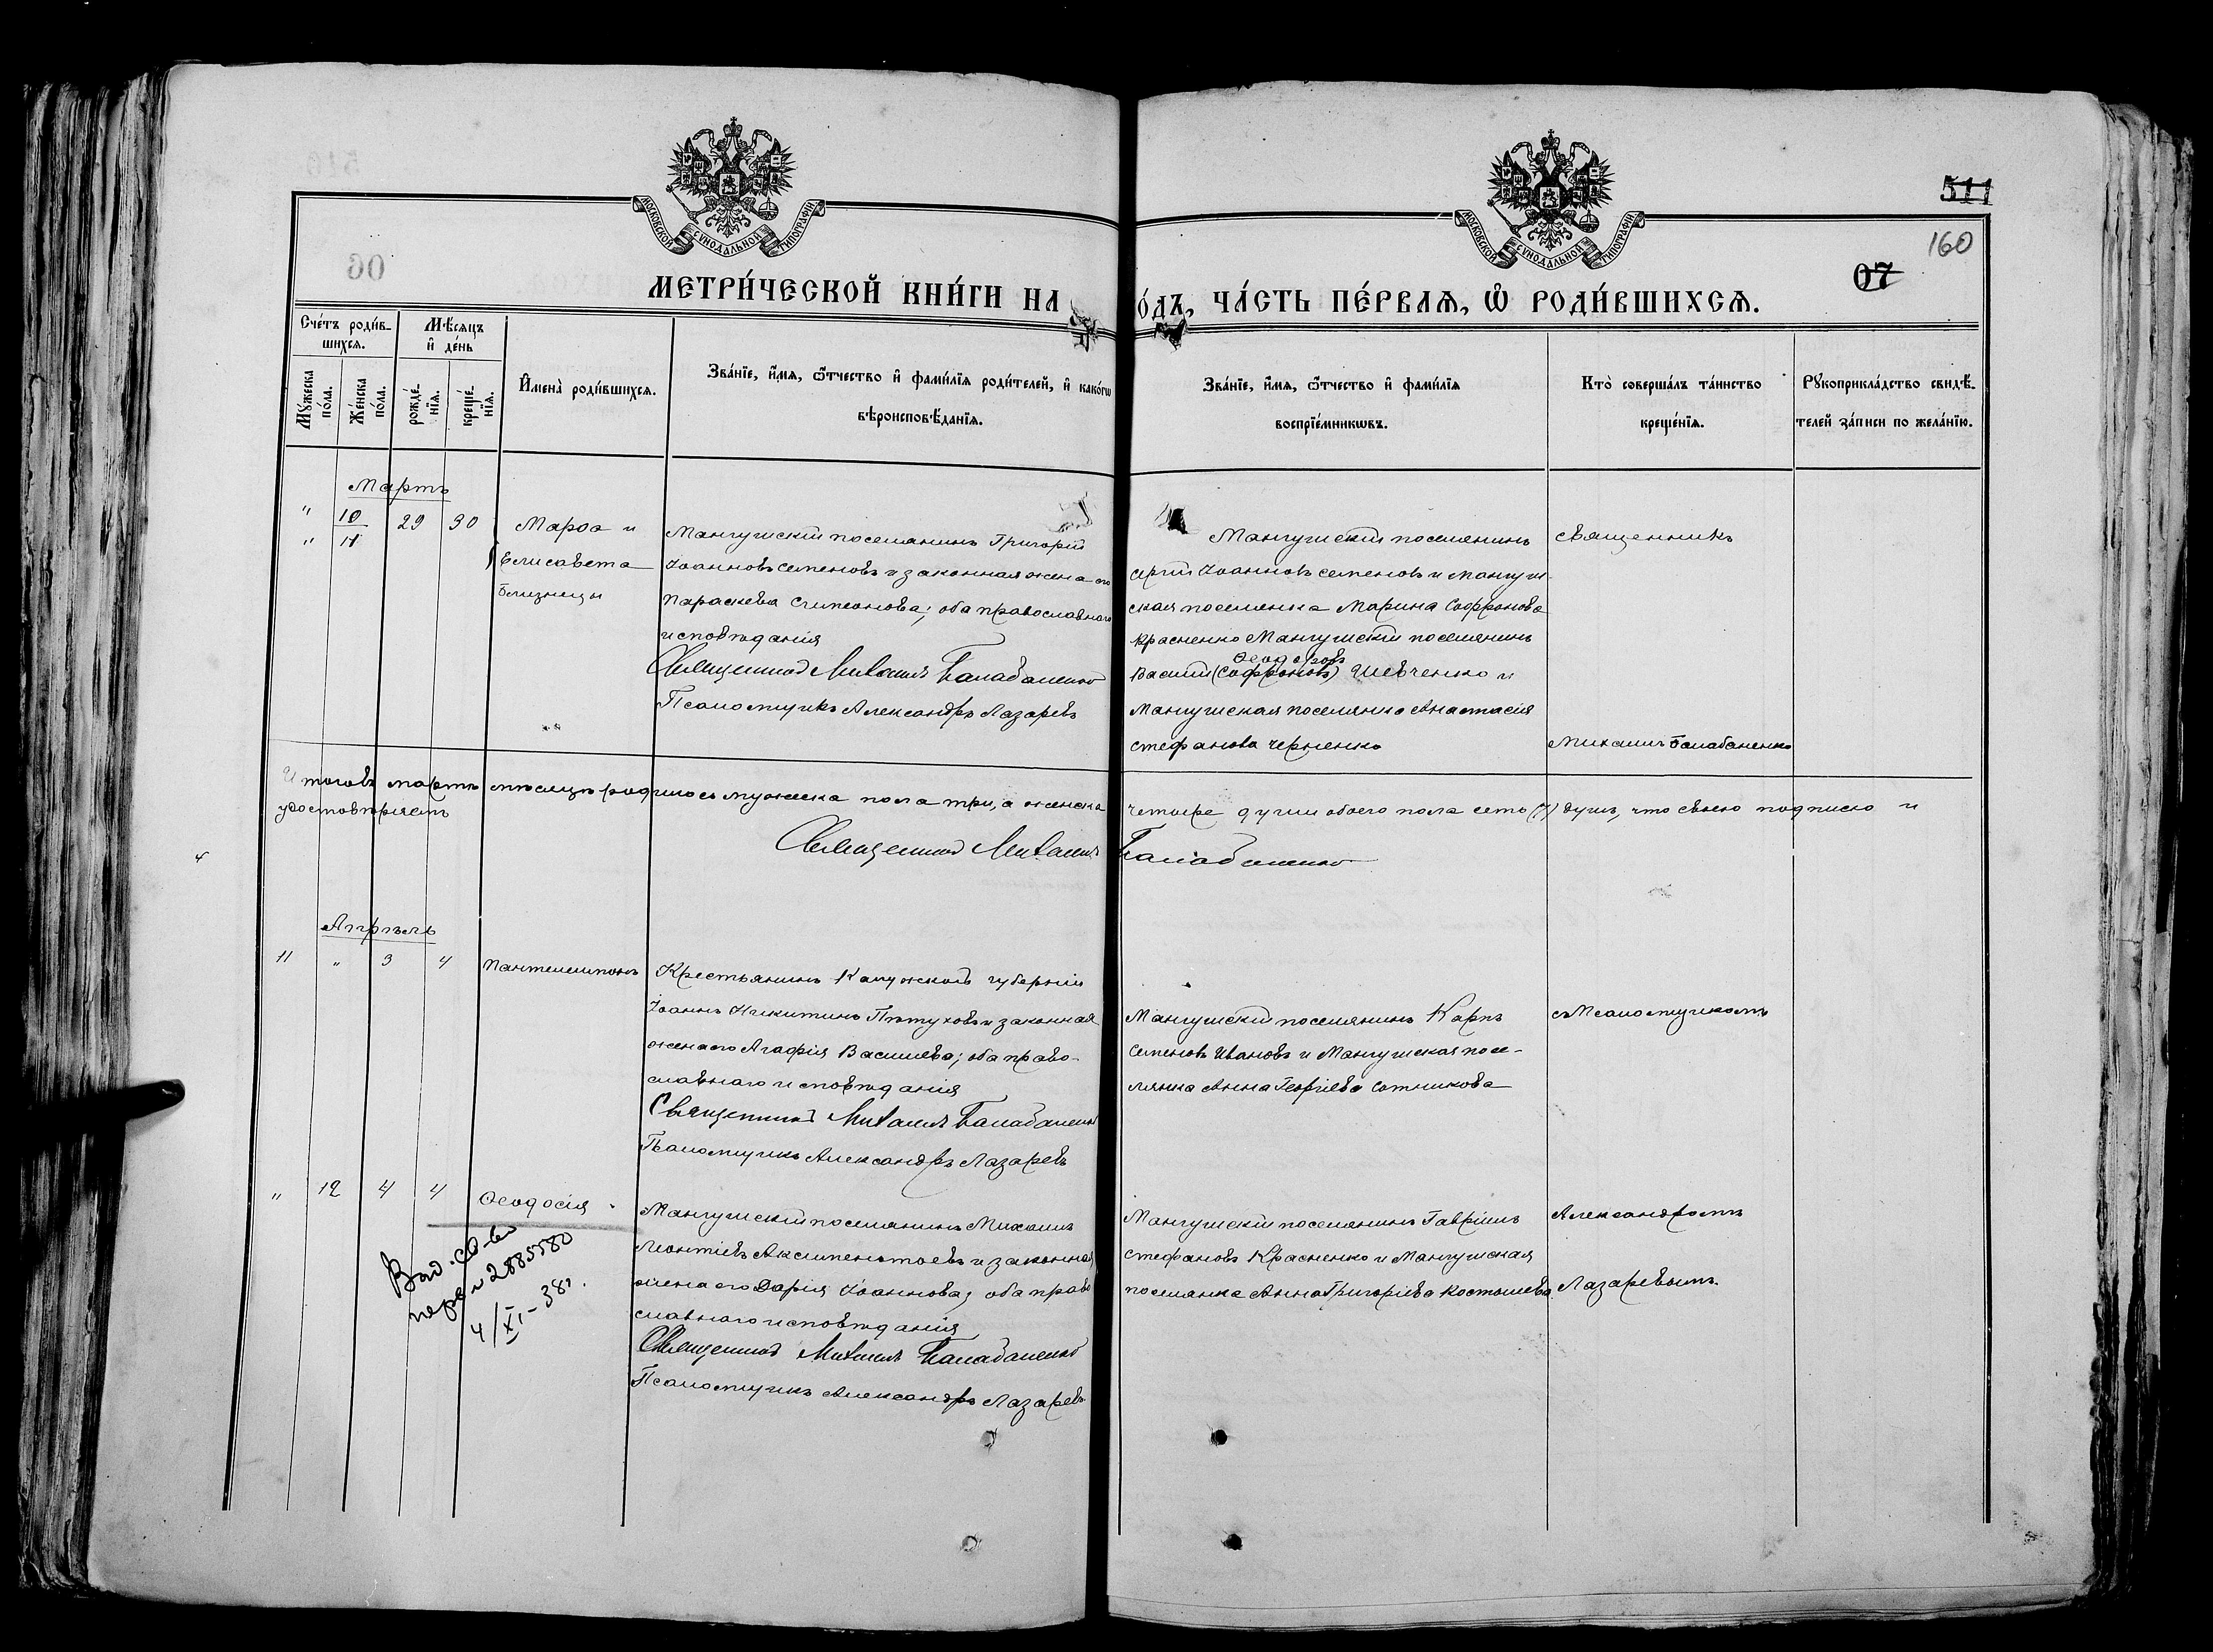 МОСКОВСКОЙ СѴНОДАЛЬНОЙ ТИПОГРАФІИ
МОСКОВСКОЙ СѴНОДАЛЬНОЙ ТИПОГРАФІИ
511
160
07
МЕТРИ́ЧЕСКОЙ КНИ́ГИ НА
О́ДЪ, ЧА́СТЬ ПЕ́РВАѦ, Ѽ РОДИ́ВШИХСѦ.
Сче́тъ роди́в-
шихсѧ.
Мѣ́сѧцъ
и҆ де́нь
Мꙋ́жеска по́ла.
Же́нска по́ла.
рожде́-
нїѧ.
креще́-
нїѧ.
И҆мена̀ роди́вшихсѧ.
Зва́нїе, и҆́мѧ, ѻ҆́тчество и҆ фами́лїѧ роди́телей, и҆ како́гѡ
вѣроисповѣ́данїѧ.
Зва́нїе, и҆́мѧ, ѻ҆́тчество и҆ фами́лїѧ
воспрїе́мникѡвъ.
Кто̀ соверша́лъ та́инство
креще́нїѧ.
Рꙋкоприкла́дство свидѣ́-
телей за́писи по жела́нїю.
Мартъ
" 10 29 30 Марѳа и
" 11
Елисавета
близнецы
Мангушскій поселянинъ Григорій
Іоанновъ Семеновъ и законная жена его
Параскева Симеонова; оба православнаго
исповѣданія
Священникъ Михаилъ Балабаненко
Псаломщикъ Александръ Лазаревъ
Мангушскій поселянинъ
Сергій Іоанновъ Семеновъ и Мангуш-
ская поселянка Марина Софронова
Красненко Мангушскій поселянинъ
Ѳеодоровъ
Василій (Софроновъ) Шевченко и
Мангушская поселянка Анастасія
Стефанова Черненко
Священникъ
Михаилъ Балабаненко
Итого въ мартѣ мѣсяцѣ родилось мужеска пола три, а женска четыре души обоего пола семь (7) душъ, что своею подписью и
удостовѣряетъ
Священникъ Михаилъ Балабаненко
Апрѣль
11 " 3 4 Пантелеимонъ
Крестьянинъ Калужской губерніи
Іоаннъ Никитинъ Пѣтуховъ и законная
жена его Агафія Васильева; оба право-
славнаго исповѣданія
Священникъ Михаилъ Балабаненко
Псаломщикъ Александръ Лазаревъ
Мангушскій поселянинъ Карпъ
Семеновъ Ивановъ и Мангушская посе-
лянка Анна Георгіева Сотникова
съ Псаломщикомъ
" 12 4 4 Ѳеодосія
Мангушскій поселянинъ Михаилъ
Леонтіевъ Аксиментоевъ и законная
жена его Дарія Іоаннова; оба право
славнаго исповѣданія
Священникъ Михаилъ Балабаненко
Псаломщикъ Александръ Лазаревъ
Мангушскій поселянинъ Гавріилъ
Стефановъ Красненко и Мангушская
поселянка Анна Григоріева Костюшева
Александромъ
Лазаревымъ.
2885580
4/XI-38г.